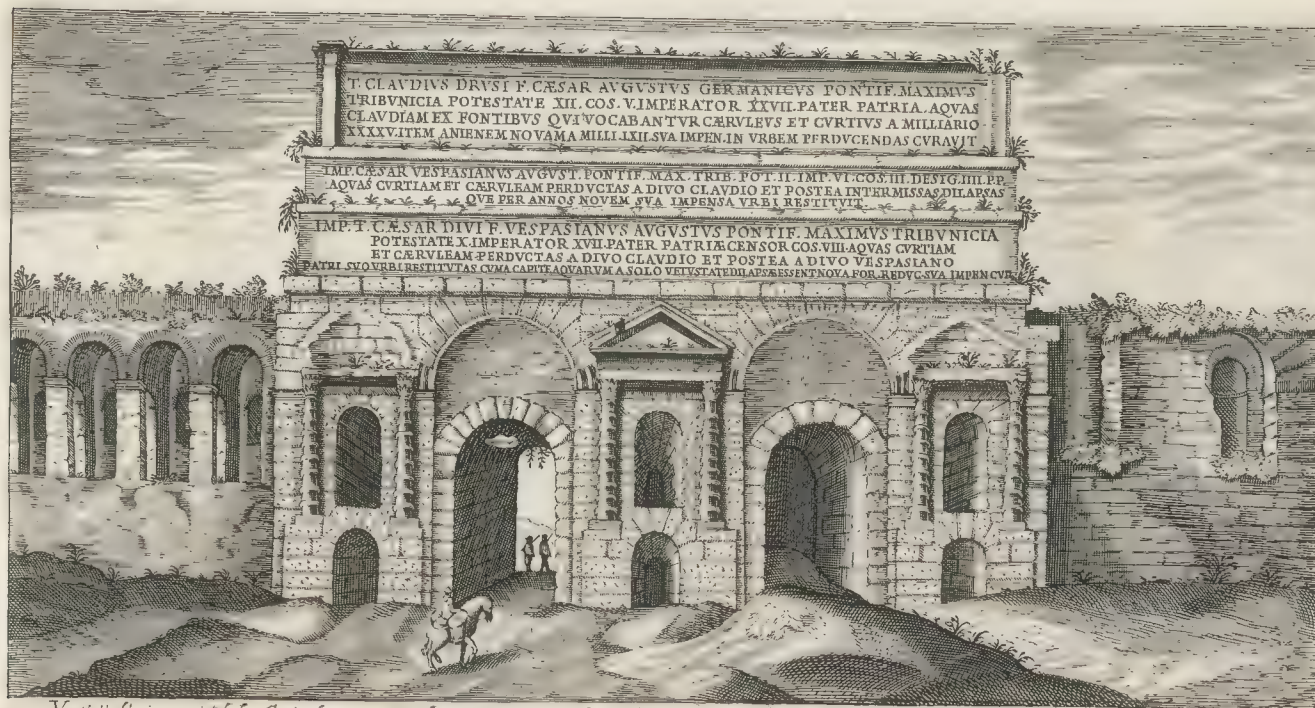 T. CLAVDIVS DRVSI F. CÆSAR AVGVSTVS GERMANICVS PONTIF. MAXIMVS
TRIBVNICIA POTESTATE XII. COS. V. IMPERATOR XXVII. PATER PATRIA. AQVAS
CLAVDIAM EX FONTIBVS QVI VOCABANTVR CÆRVLEVS ET CVRTIVS A MILLIARIO
XXXXV. ITEM ANIENEM NOVAM A MILLI. LXII. SVA IMPEN. IN VRBEM PERDVCENDAS CVRAVIT
IMP. CÆSAR VESPASIANVS AVGVST. PONTIF. MAX. TRIB. POT. II. IMP. VI. COS. III. DESIG. IIII. P.P.
AQVAS CVRTIAM ET CÆRVLEAM PERDVCTAS A DIVO CLAVDIO ET POSTEA INTERMISSAS DILAPSAS
QVE PER ANNOS NOVEM SVA IMPENSA VRBI RESTITVIT
IMP. T. CÆSAR DIVI F. VESPASIANVS AVGVSTVS PONTIF. MAXIMVS TRIBVNICIA
POTESTATE X. IMPERATOR XVII. PATER PATRIÆ CENSOR COS. VIII. AQVAS CVRTIAM
ET CÆRVLEAM PERDVCTAS A DIVO CLAVDIO ET POSTEA A DIVO VESPASIANO
PATRI SVO VRBI RESTITVTAS CVM A CAPITE AQVARVM A SOLO VETVSTATE DILAPSÆ ESSENT NOVA FOR. REDVC. SVA IMPEN CVR